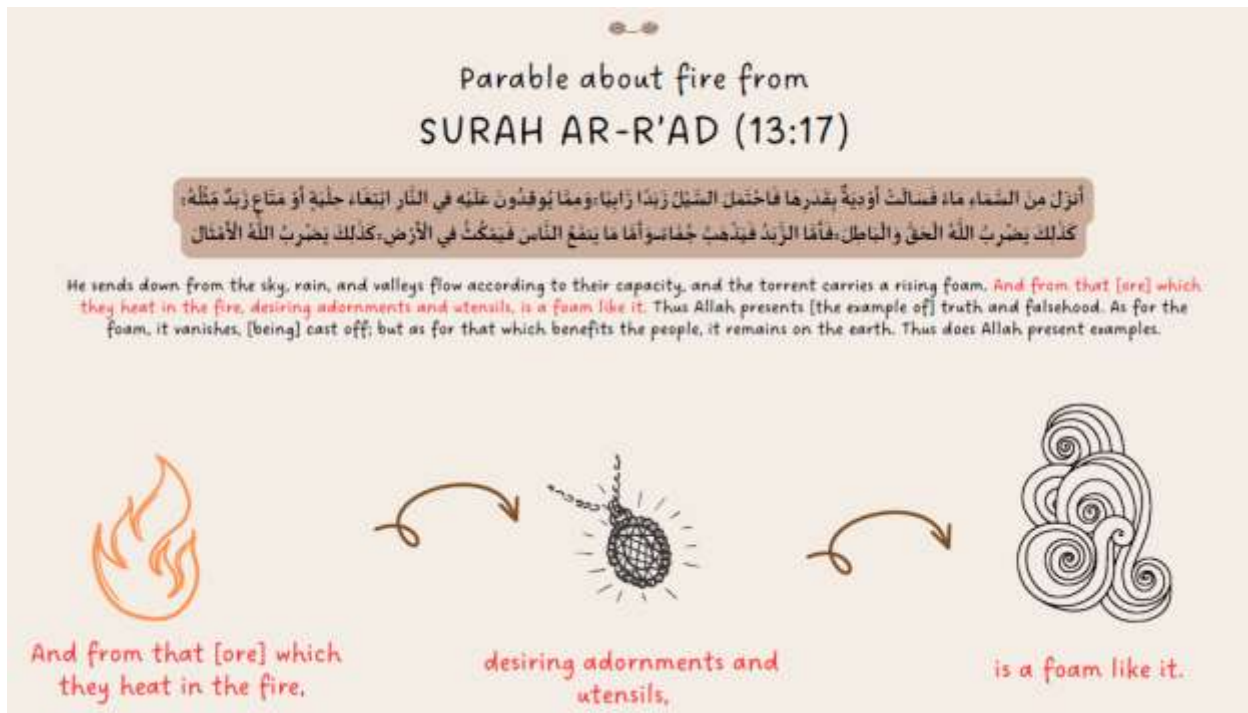 Parable about fire from
SURAH AR-R'AD (13:17)
أَنزَلَ مِنَ السَّمَاءِ مَاءً فَسَالَتْ أَوْدِيَةٌ بِقَدَرِهَا فَاحْتَمَلَ السَّيْلُ زَبَدًا رَّابِيًا ۚ وَمِمَّا يُوقِدُونَ عَلَيْهِ فِي النَّارِ ابْتِغَاءَ حِلْيَةٍ أَوْ مَتَاعٍ زَبَدٌ مِّثْلُهُ ۚ
كَذَٰلِكَ يَضْرِبُ اللَّهُ الْحَقَّ وَالْبَاطِلَ ۚ فَأَمَّا الزَّبَدُ فَيَذْهَبُ جُفَاءً ۖ وَأَمَّا مَا يَنفَعُ النَّاسَ فَيَمْكُثُ فِي الْأَرْضِ ۚ كَذَٰلِكَ يَضْرِبُ اللَّهُ الْأَمْثَالَ
He sends down from the sky, rain, and valleys flow according to their capacity, and the torrent carries a rising foam. And from that [ore] which
they heat in the fire, desiring adornments and utensils, is a foam like it. Thus Allah presents [the example of] truth and falsehood. As for the
foam, it vanishes, [being] cast off; but as for that which benefits the people, it remains on the earth. Thus does Allah present examples.
And from that [ore] which
they heat in the fire,
desiring adornments and
utensils,
is a foam like it.